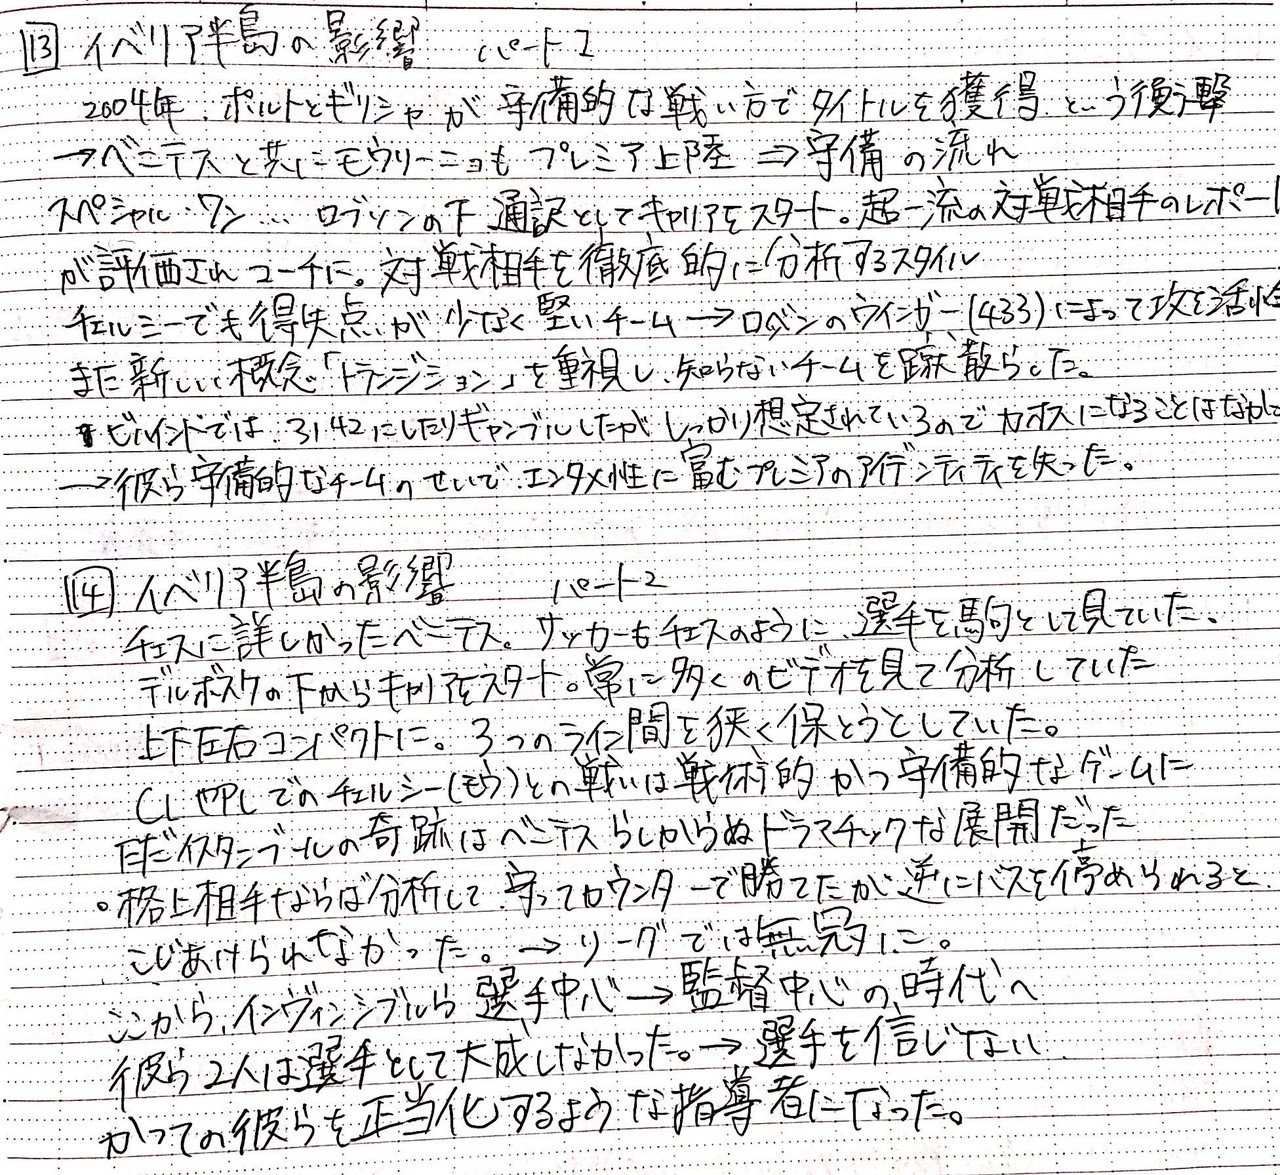 13 イベリア半島の影響 パート1
2004年、ポルトとギリシャが守備的な戦い方でタイトルを獲得という衝撃
→ベニテスと共にモウリーニョもプレミア上陸 ⇒ 守備の流れ
スペシャル・ワン… ロブソンの下 通訳としてキャリアをスタート。超一流の対戦相手のレポート
が評価されコーチに。対戦相手を徹底的に分析するスタイル
チェルシーでも得失点が少なく堅いチーム → ロッベンのウインガー(433)によって攻を活性
また新しい概念「トランジション」を重視し、知らないチームを蹴散らした。
・ビハインドでは、3142にしたりギャンブルしたがしっかり想定されているのでカオスになることはなかった
→彼ら守備的なチームのせいで、エンタメ性に富むプレミアのアイデンティティを失った。
14 イベリア半島の影響 パート2
チェスに詳しかったベニテス。サッカーもチェスのように、選手を駒として見ていた。
デルボスケの下からキャリアをスタート。常に多くのビデオを見て分析していた
上下左右コンパクトに。3つのライン間を狭く保とうとしていた。
CLやPLでのチェルシー(モウ)との戦いは戦術的かつ守備的なゲームに
ただイスタンブールの奇跡はベニテスらしからぬドラマチックな展開だった
・格上相手ならば分析して、守ってカウンターで勝てたが逆にバスを停められると、
こじあけられなかった。→リーグでは無冠に。
ここから、インヴィンシブルら選手中心→監督中心の時代へ
彼ら2人は選手として大成しなかった。→選手を信じない
かつての彼らを正当化するような指導者になった。